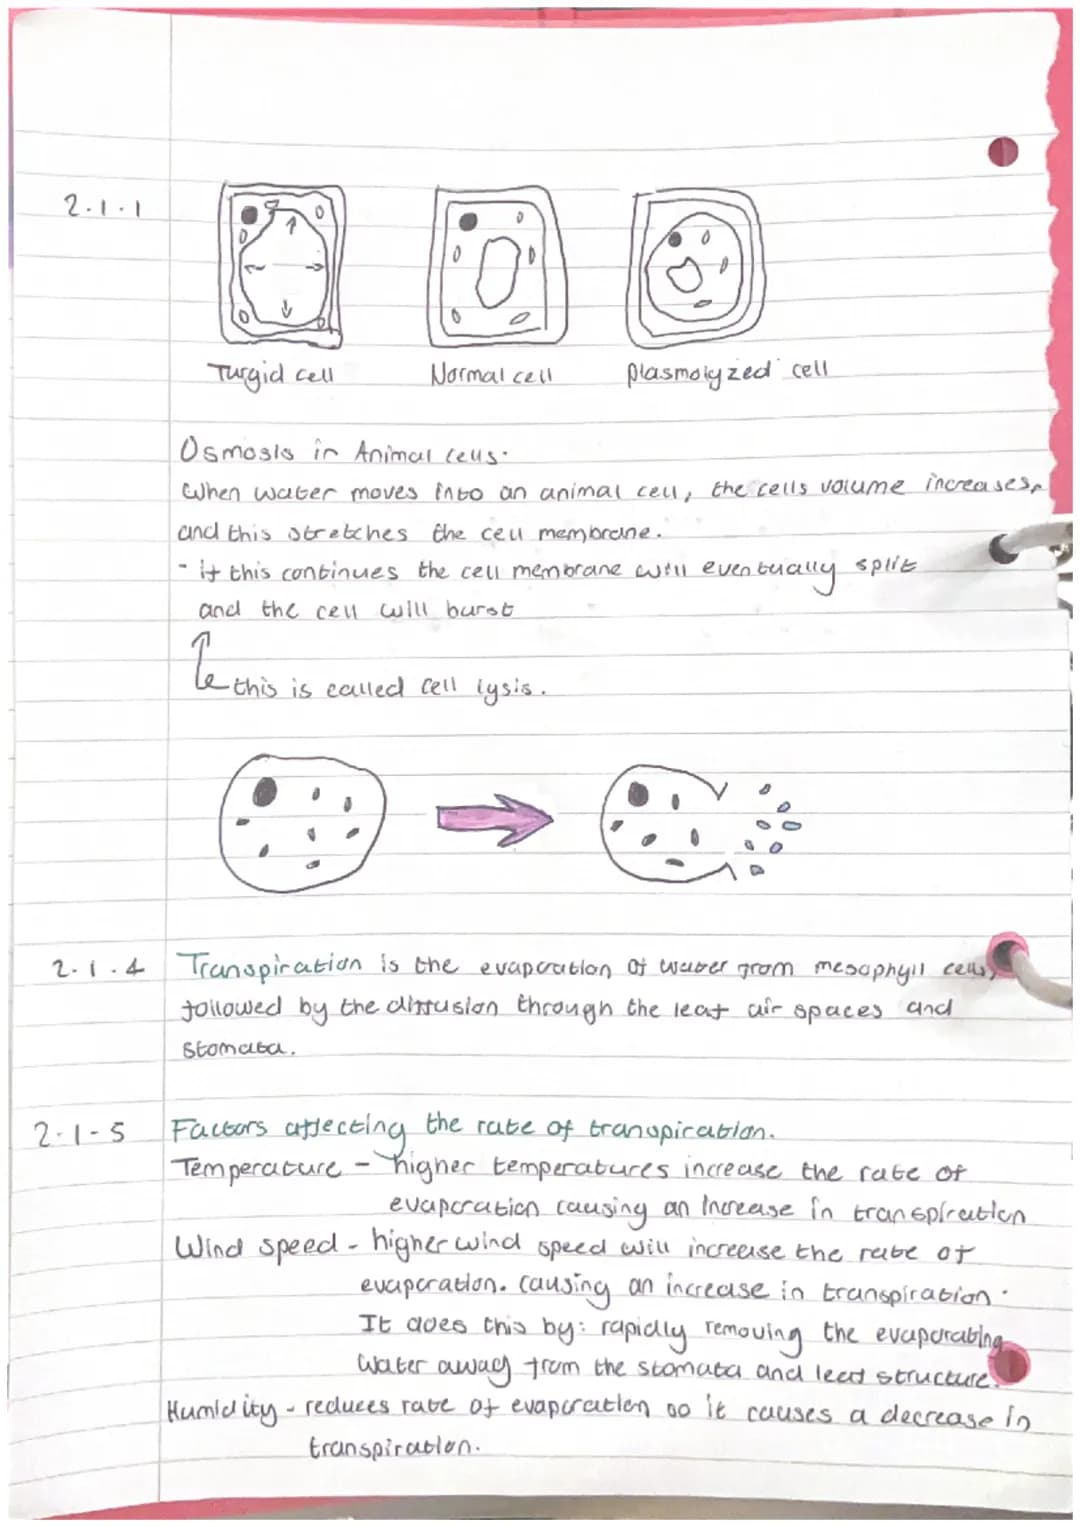 2.1.1
Turgid cell Normal cell plasmolyzed cell
Osmosis in Animal cells.
When water moves into an animal cell, the cells volume increases,
and this stretches the cell membrane.
- if this continues the cell membrane will eventually split
and the cell will burst
this is called cell lysis.
2.1.4 Transpiration is the evaporation of water from mesophyll cells,
followed by the diffusion through the leaf air spaces and
stomata.
2.1-5 Factors affecting the rate of transpiration.
Temperature - higher temperatures increase the rate of
evaporation causing an increase in transpiration
Wind speed - higher wind speed will increase the rate of
evaporation. causing an increase in transpiration.
It does this by: rapidly removing the evaporating
water away from the stomata and leaf structure.
Humidity - reduces rate of evaporation so it causes a decrease in
transpiration.